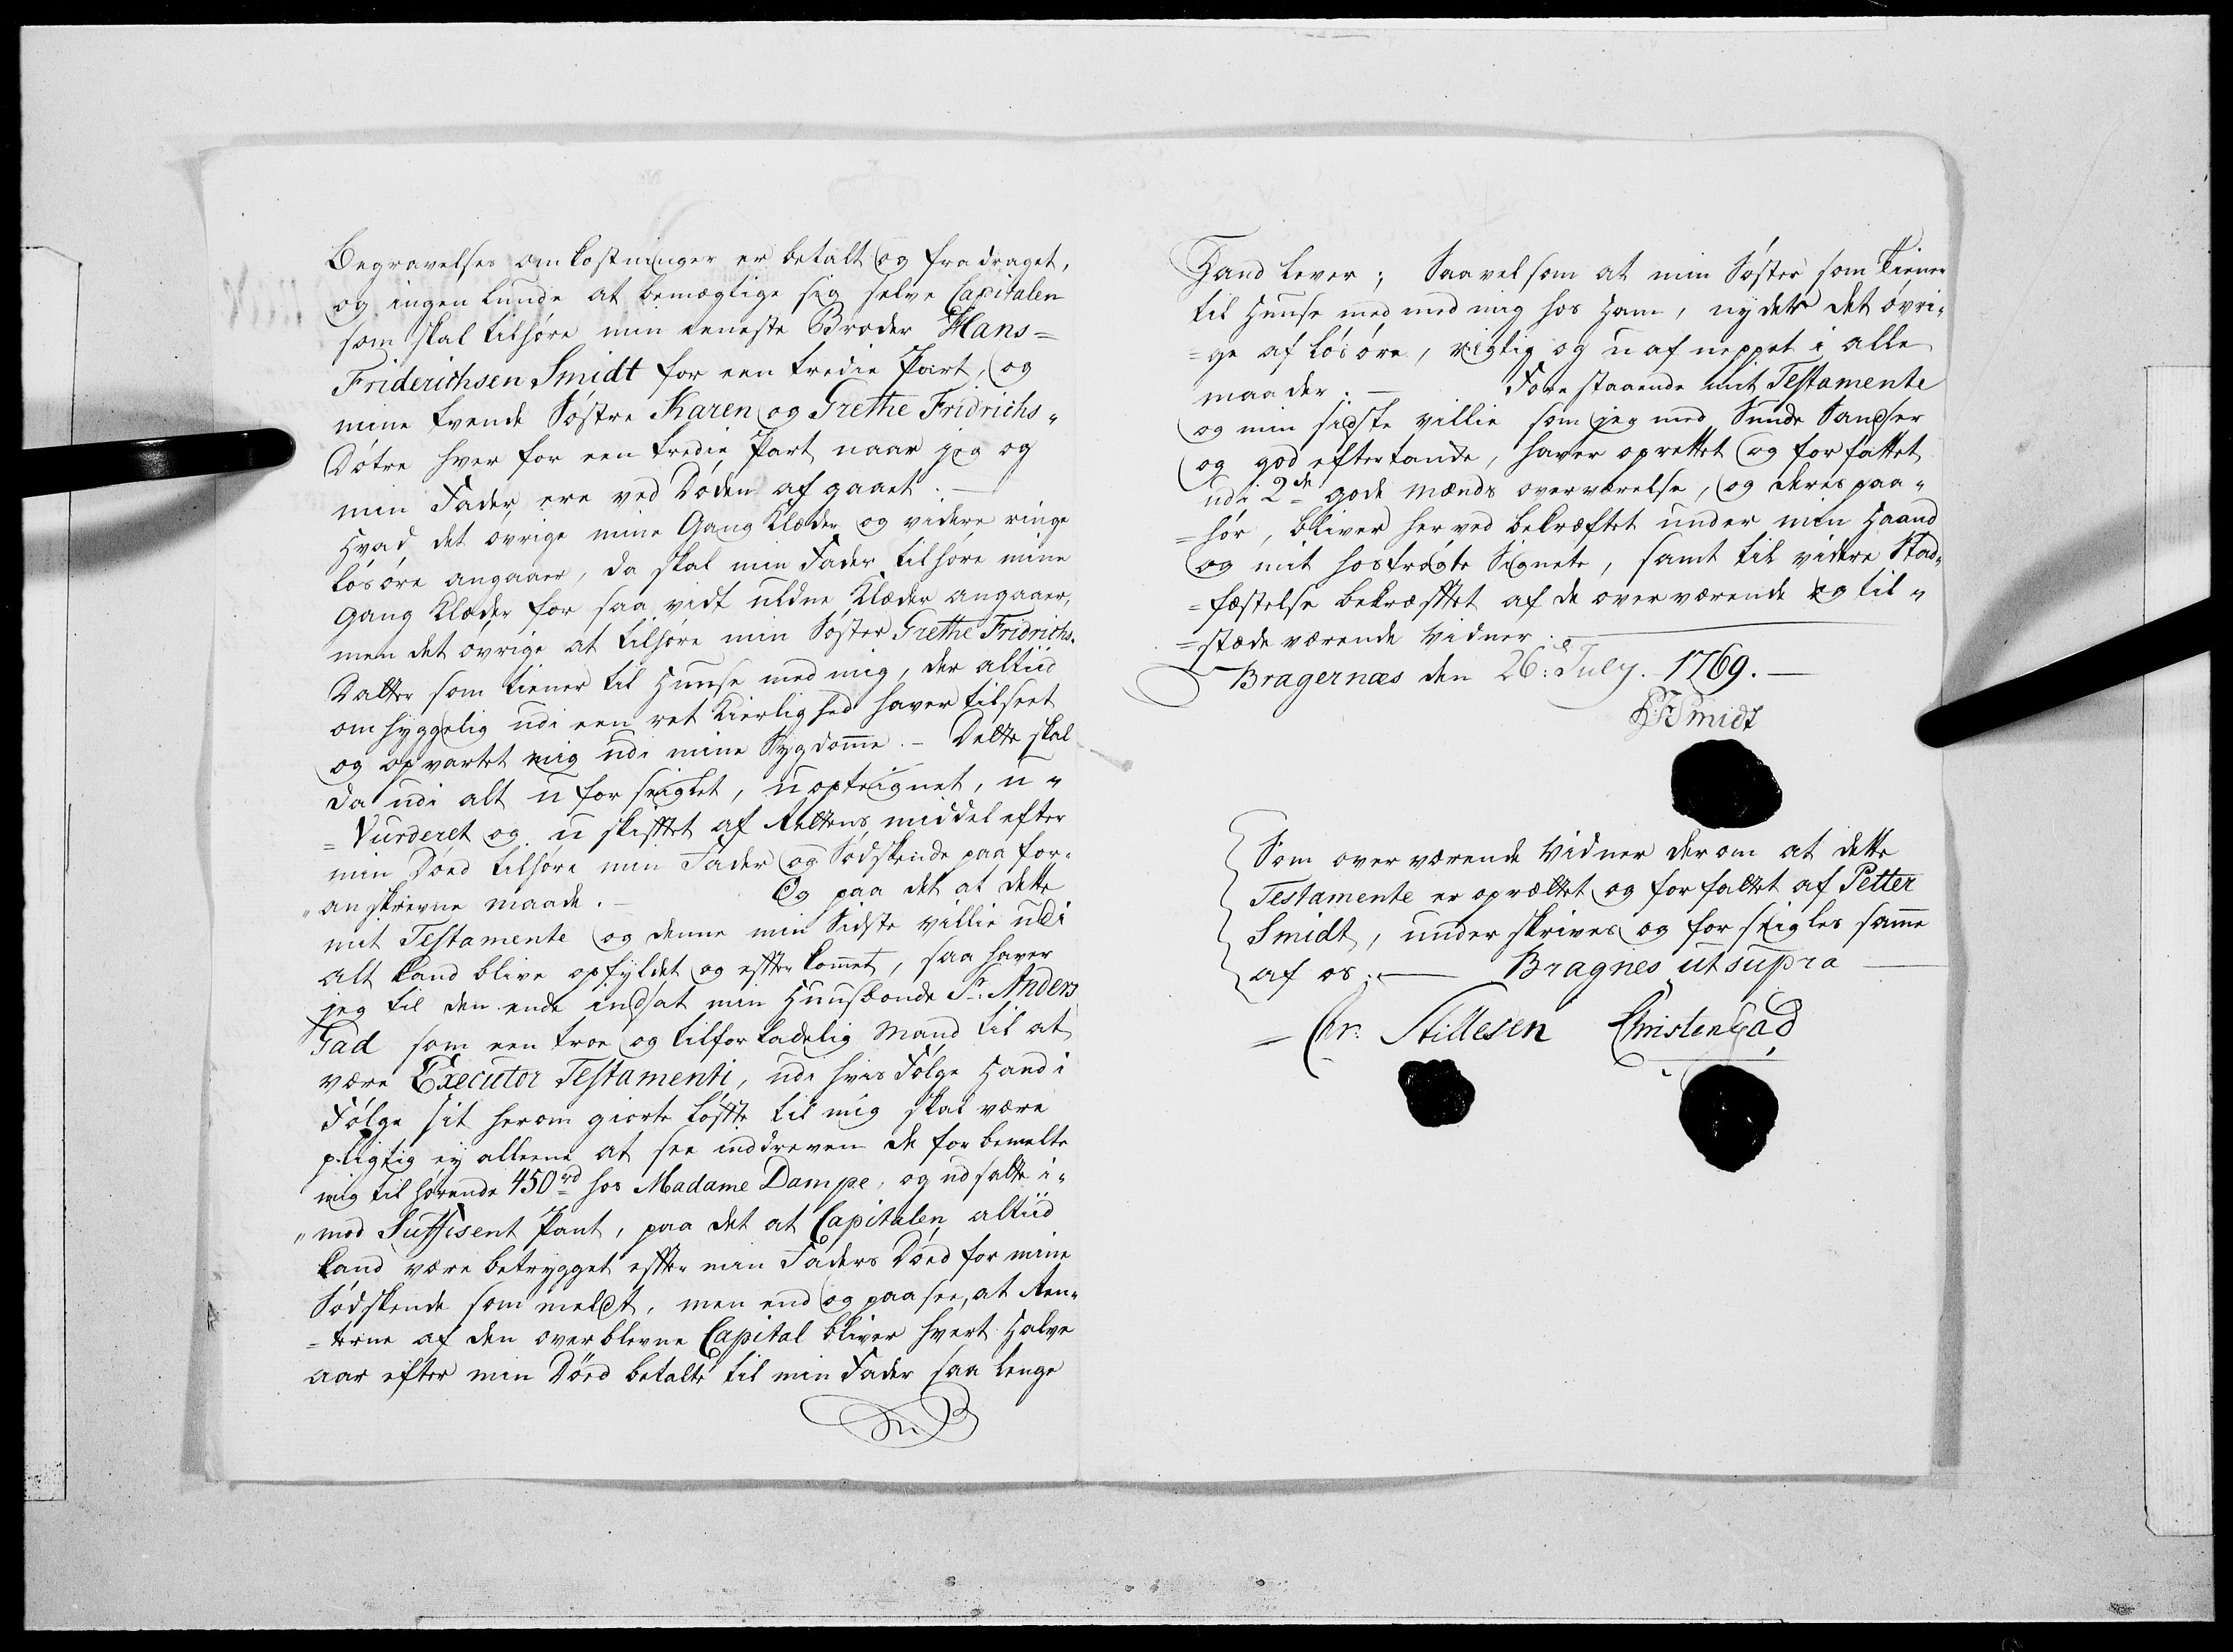 Begravelses omkostninger er betalt og fradraget,
og ingenlunde at bemægtige sig selve Capitalen
som skal tilhøre min eeneste Broder Hans=
Friderichsen Smidt for een tredie Part, og
mine tvende Søstre Karen og Grethe Fridrichs„
Døtre hver for een tredie Part naar jeg og
min Fader, ere ved Døden af gaaet. —
Hvad det øvrige mine Gang Klæder og videre ringe
løsøre angaaer, da skal min Fader tilhøre mine
Gang Klæder for saa vidt uldne Klæder angaaer,
men det øvrige at tilhøre min Søster Grethe Fridrichs„
Datter som tiener til Huuse med mig, der altiid
omhyggelig udi een ret Kierlighed haver tilseet
og opvartet mig udi mine Sygdomme. — Dette skal
da udi alt u forseiglet, u optegnet, u„
=Vurderet og u skifftet af Rettens middel efter
min Død tilhøre min Fader og Sødskende paa for„
„anskrevne maade. — Og paa det at dette
mit Testamente og denne min Sidste villie udi
alt kand blive opfyldet og effterkommet, saa haver
jeg til den ende indsat min Huusbonde Sr. Anders
Gad som een troe og tilforladelig Mand til at
være Executor Testamenti, udi hvis Følge Hand i
Følge sit herom giorte løffte til mig skal være
pligtig ej alleene at see inddreven de forbemelte
mig tilhørende 450 rd hos Madame Dampe, og udsatte i„
„mod Suffisent Pant, paa det at Capitalen altiid
kand være betrygget effter min Faders Død for mine
Sødskende som meldt, men end og paasee, at Ren„
=terne af den overblevne Capital bliver hvert Halve
aar efter min Død betalte til min Fader saa lenge
Hand lever; Saavelsom at min Søster som tiener
til Huuse med med mig hos Ham, nyder det øvri„
=ge af løsøre, rigtig og u afneppet i alle
maader. — Forestaaende mit Testamente
og min sidste villie som jeg med Sunde Sandser
og god eftertanke, haver oprettet og forfattet
udi 2de gode Mænds overværelse, og deres paa„
=hør, bliver herved bekræftet under min Haand
og mit hostrøgte Signete, samt til videre Stad„
=fæstelse bekræfftet af de overværende og til„
=stæde værende Vidner. —
Bragernæs den 26: July. 1769. —
PFSmidt
Som overværende Vidner derom at dette
Testamente er oprættet og forfattet af Petter
Smidt, underskrives og forseigles samme
af os. — Bragnes ut supra —
= Chr: Stillesen Christen Gad